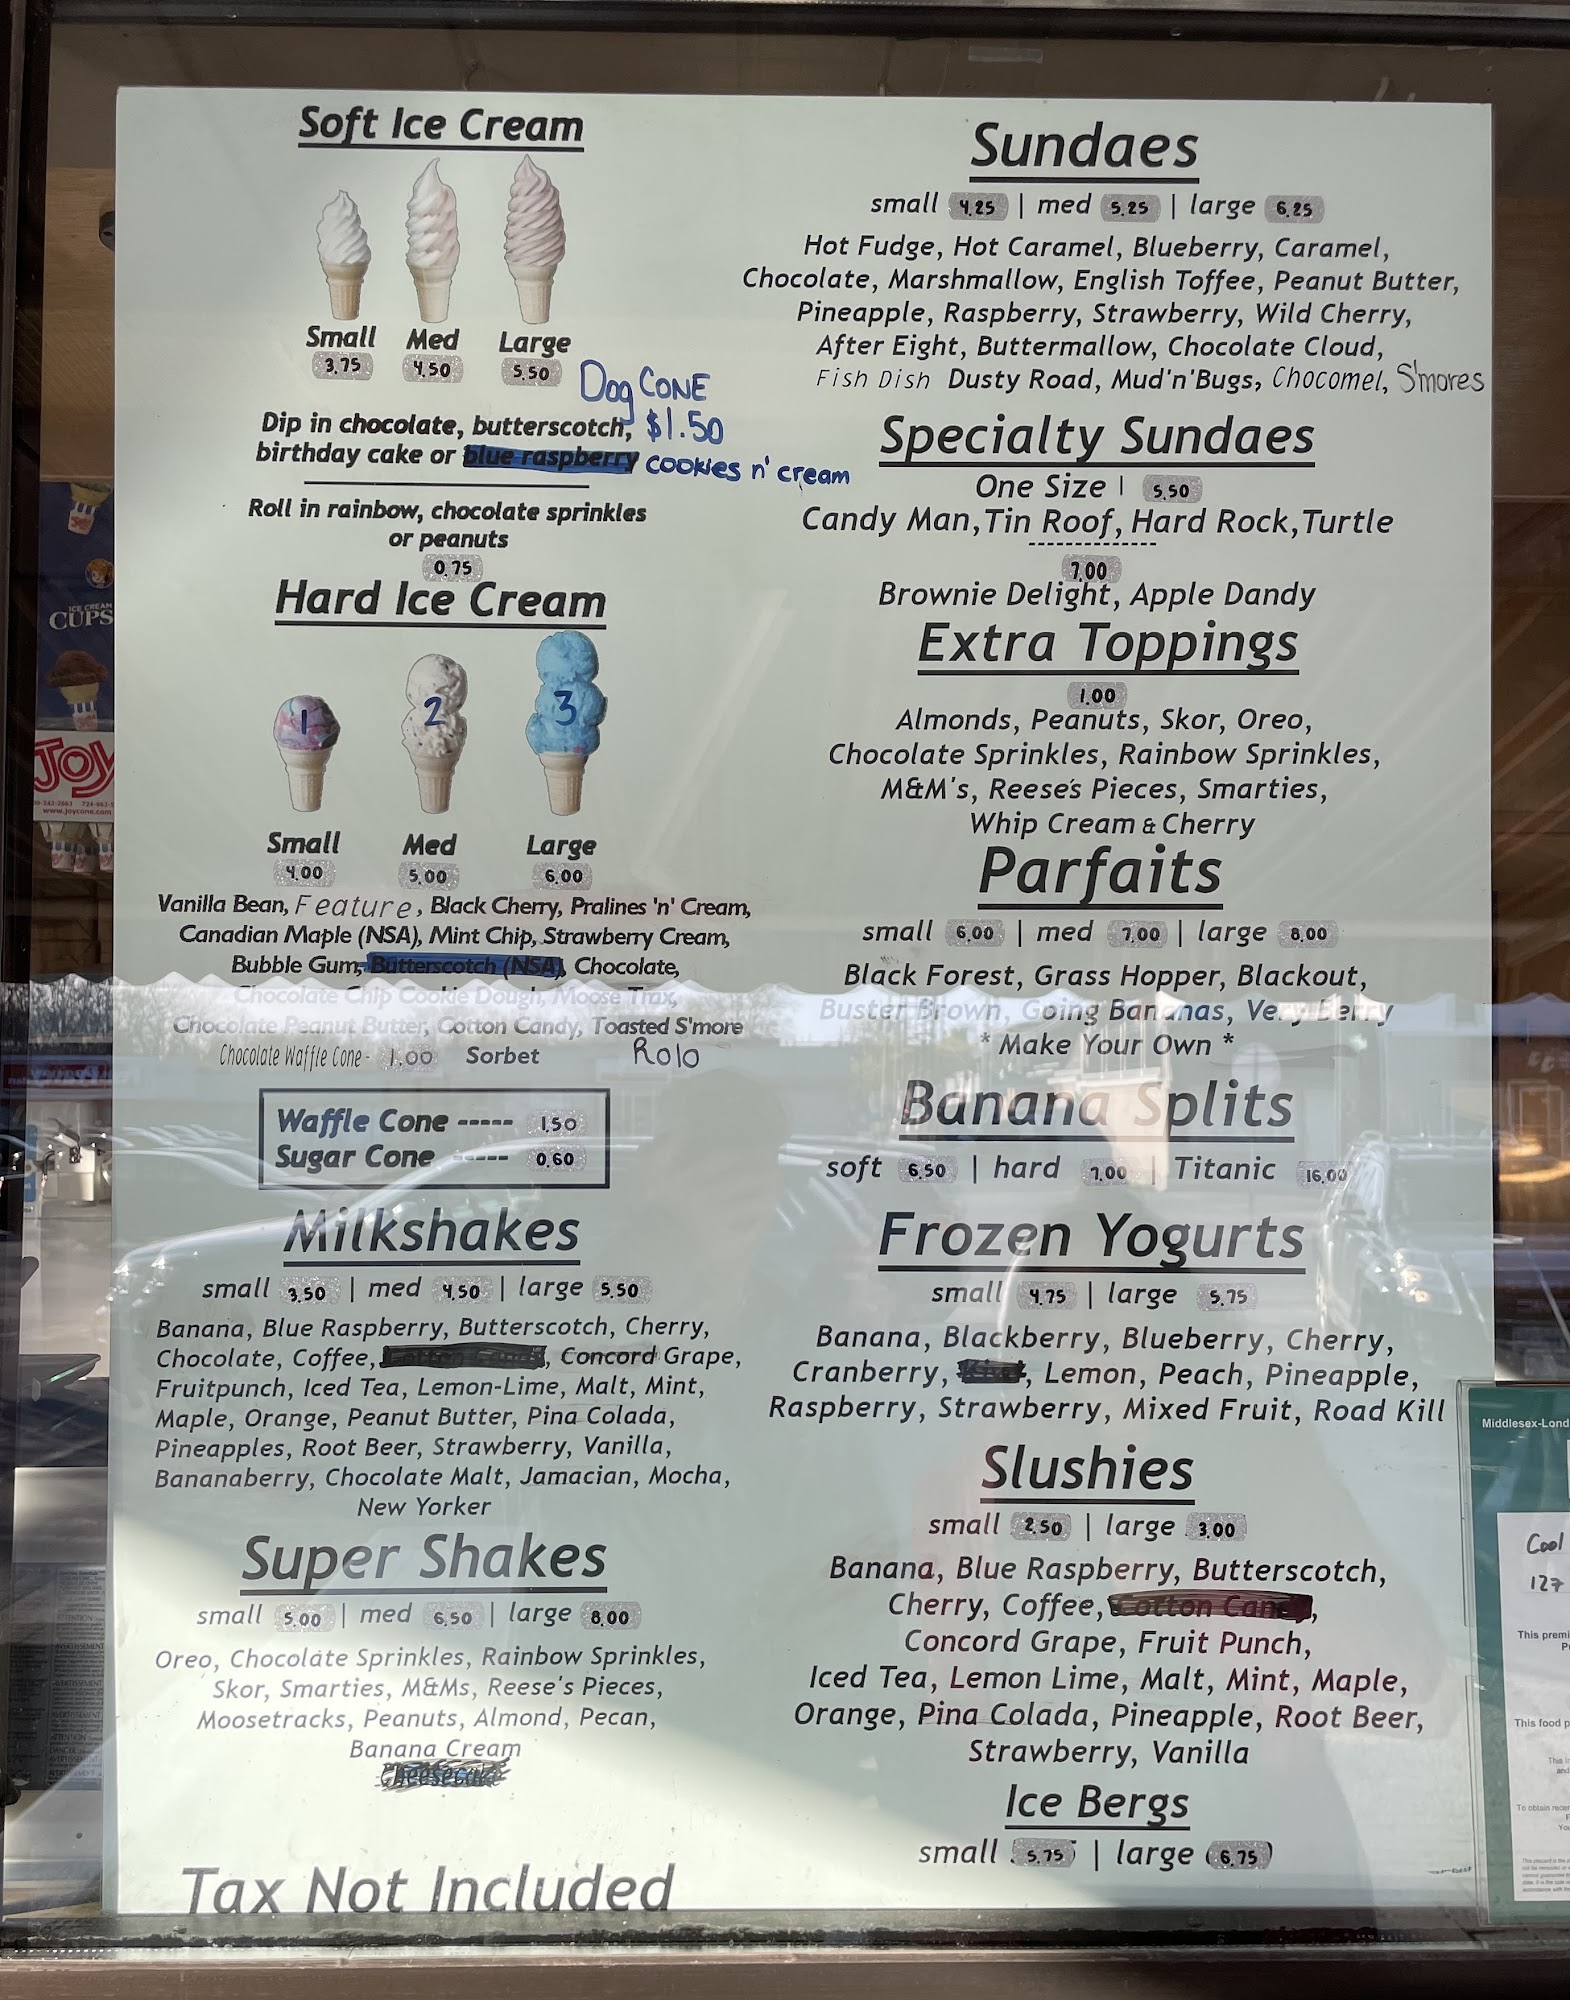 Soft Ice Cream
Small Med Large
3.75 4.50 5.50
Dog CONE
$1.50
Dip in chocolate, butterscotch,
birthday cake or blue raspberry cookies n' cream
Roll in rainbow, chocolate sprinkles
or peanuts
0.75
Hard Ice Cream
1 2 3
Small Med Large
4.00 5.00 6.00
Vanilla Bean, Feature, Black Cherry, Pralines 'n' Cream,
Canadian Maple (NSA), Mint Chip, Strawberry Cream,
Bubble Gum, Butterscotch (NSA), Chocolate,
Chocolate Chip Cookie Dough, Moose Trax,
Chocolate Peanut Butter, Cotton Candy, Toasted S'more
Chocolate Waffle Cone - 1.00 Sorbet Rolo
Waffle Cone ----- 1.50
Sugar Cone ----- 0.60
Milkshakes
small 3.50 | med 4.50 | large 5.50
Banana, Blue Raspberry, Butterscotch, Cherry,
Chocolate, Coffee, Concord Grape,
Fruitpunch, Iced Tea, Lemon-Lime, Malt, Mint,
Maple, Orange, Peanut Butter, Pina Colada,
Pineapples, Root Beer, Strawberry, Vanilla,
Bananaberry, Chocolate Malt, Jamacian, Mocha,
New Yorker
Super Shakes
small 5.00 | med 6.50 | large 8.00
Oreo, Chocolate Sprinkles, Rainbow Sprinkles,
Skor, Smarties, M&Ms, Reese's Pieces,
Moosetracks, Peanuts, Almond, Pecan,
Banana Cream
Cheesecake
Tax Not Included
Sundaes
small 4.25 | med 5.25 | large 6.25
Hot Fudge, Hot Caramel, Blueberry, Caramel,
Chocolate, Marshmallow, English Toffee, Peanut Butter,
Pineapple, Raspberry, Strawberry, Wild Cherry,
After Eight, Buttermallow, Chocolate Cloud,
Fish Dish Dusty Road, Mud'n'Bugs, Chocomel, S'mores
Specialty Sundaes
One Size | 5.50
Candy Man, Tin Roof, Hard Rock, Turtle
-------------
7.00
Brownie Delight, Apple Dandy
Extra Toppings
1.00
Almonds, Peanuts, Skor, Oreo,
Chocolate Sprinkles, Rainbow Sprinkles,
M&M's, Reese's Pieces, Smarties,
Whip Cream & Cherry
Parfaits
small 6.00 | med 7.00 | large 8.00
Black Forest, Grass Hopper, Blackout,
Buster Brown, Going Bananas, Very Berry
* Make Your Own *
Banana Splits
soft 6.50 | hard 7.00 | Titanic 16.00
Frozen Yogurts
small 4.75 | large 5.75
Banana, Blackberry, Blueberry, Cherry,
Cranberry, Kiwi, Lemon, Peach, Pineapple,
Raspberry, Strawberry, Mixed Fruit, Road Kill
Slushies
small 2.50 | large 3.00
Banana, Blue Raspberry, Butterscotch,
Cherry, Coffee, Cotton Candy,
Concord Grape, Fruit Punch,
Iced Tea, Lemon Lime, Malt, Mint, Maple,
Orange, Pina Colada, Pineapple, Root Beer,
Strawberry, Vanilla
Ice Bergs
small 5.75 | large 6.75
ICE CREAM
CUPS
JOY
www.joycone.com
Middlesex-Lond
Cool
127
This premi
This food p
To obtain